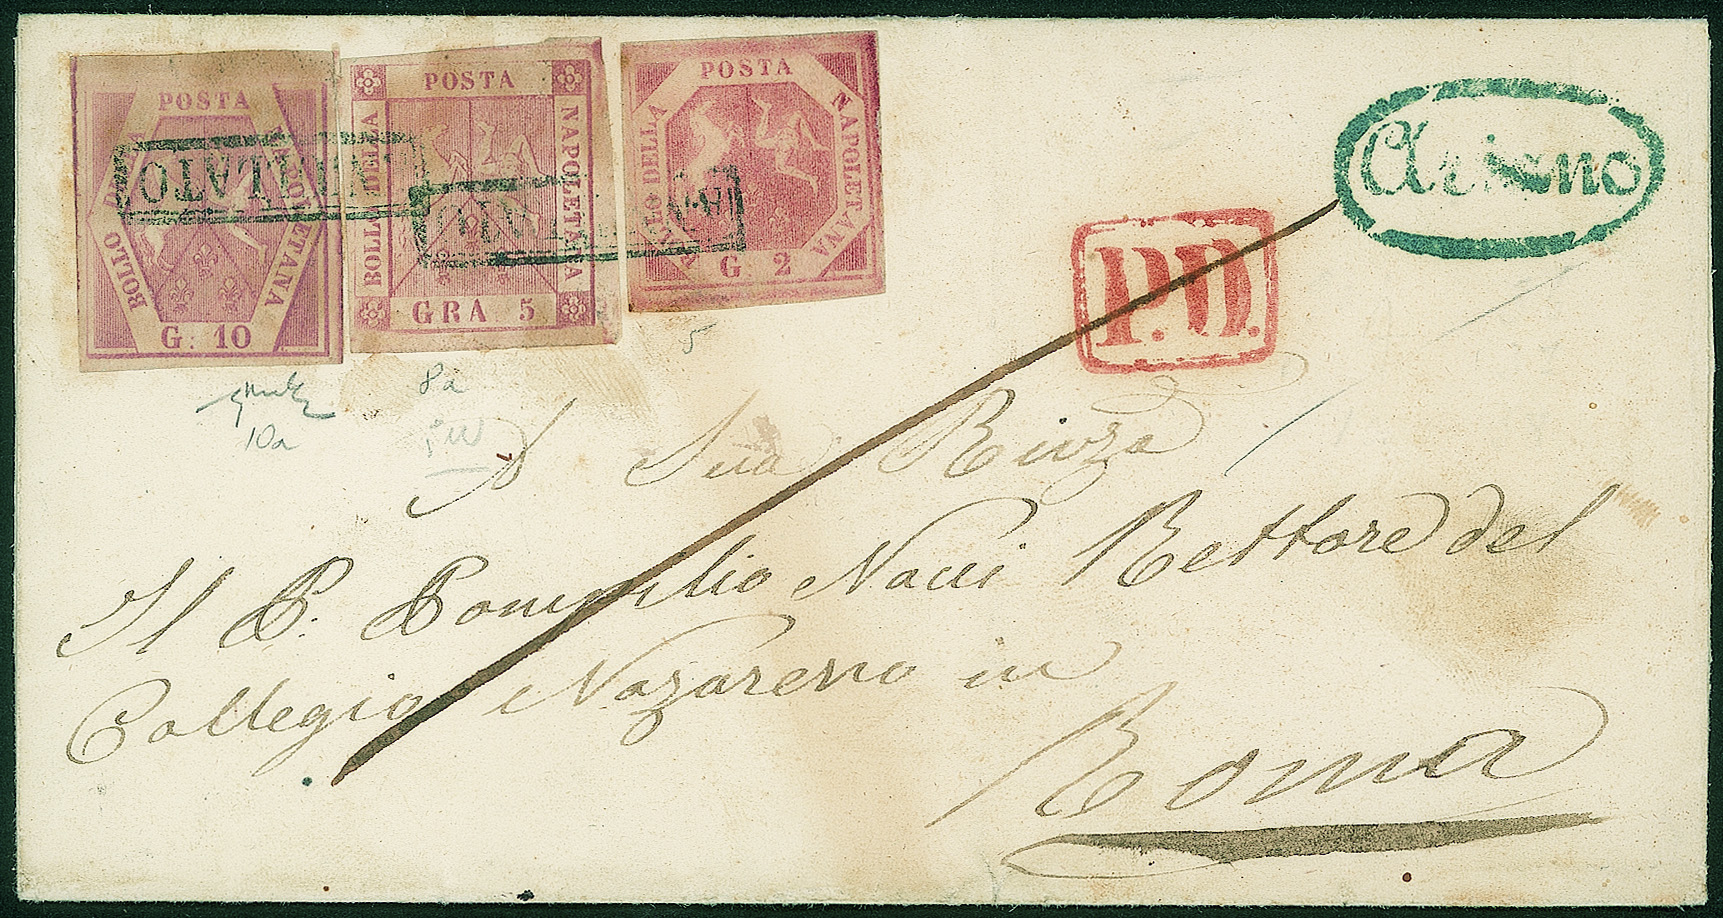 POSTA
BOLLO DELLA
NAPOLETANA
G. 10
ANNULLATO
POSTA
BOLLO DELLA
NAPOLETANA
GRA 5
ANNULLATO
POSTA
BOLLO DELLA
NAPOLETANA
G. 2
Ariano
P.D.
10a
8a
5
A Sua Rivza
Il P. Pompilio Nacci Rettore del
Collegio Nazareno in
Roma